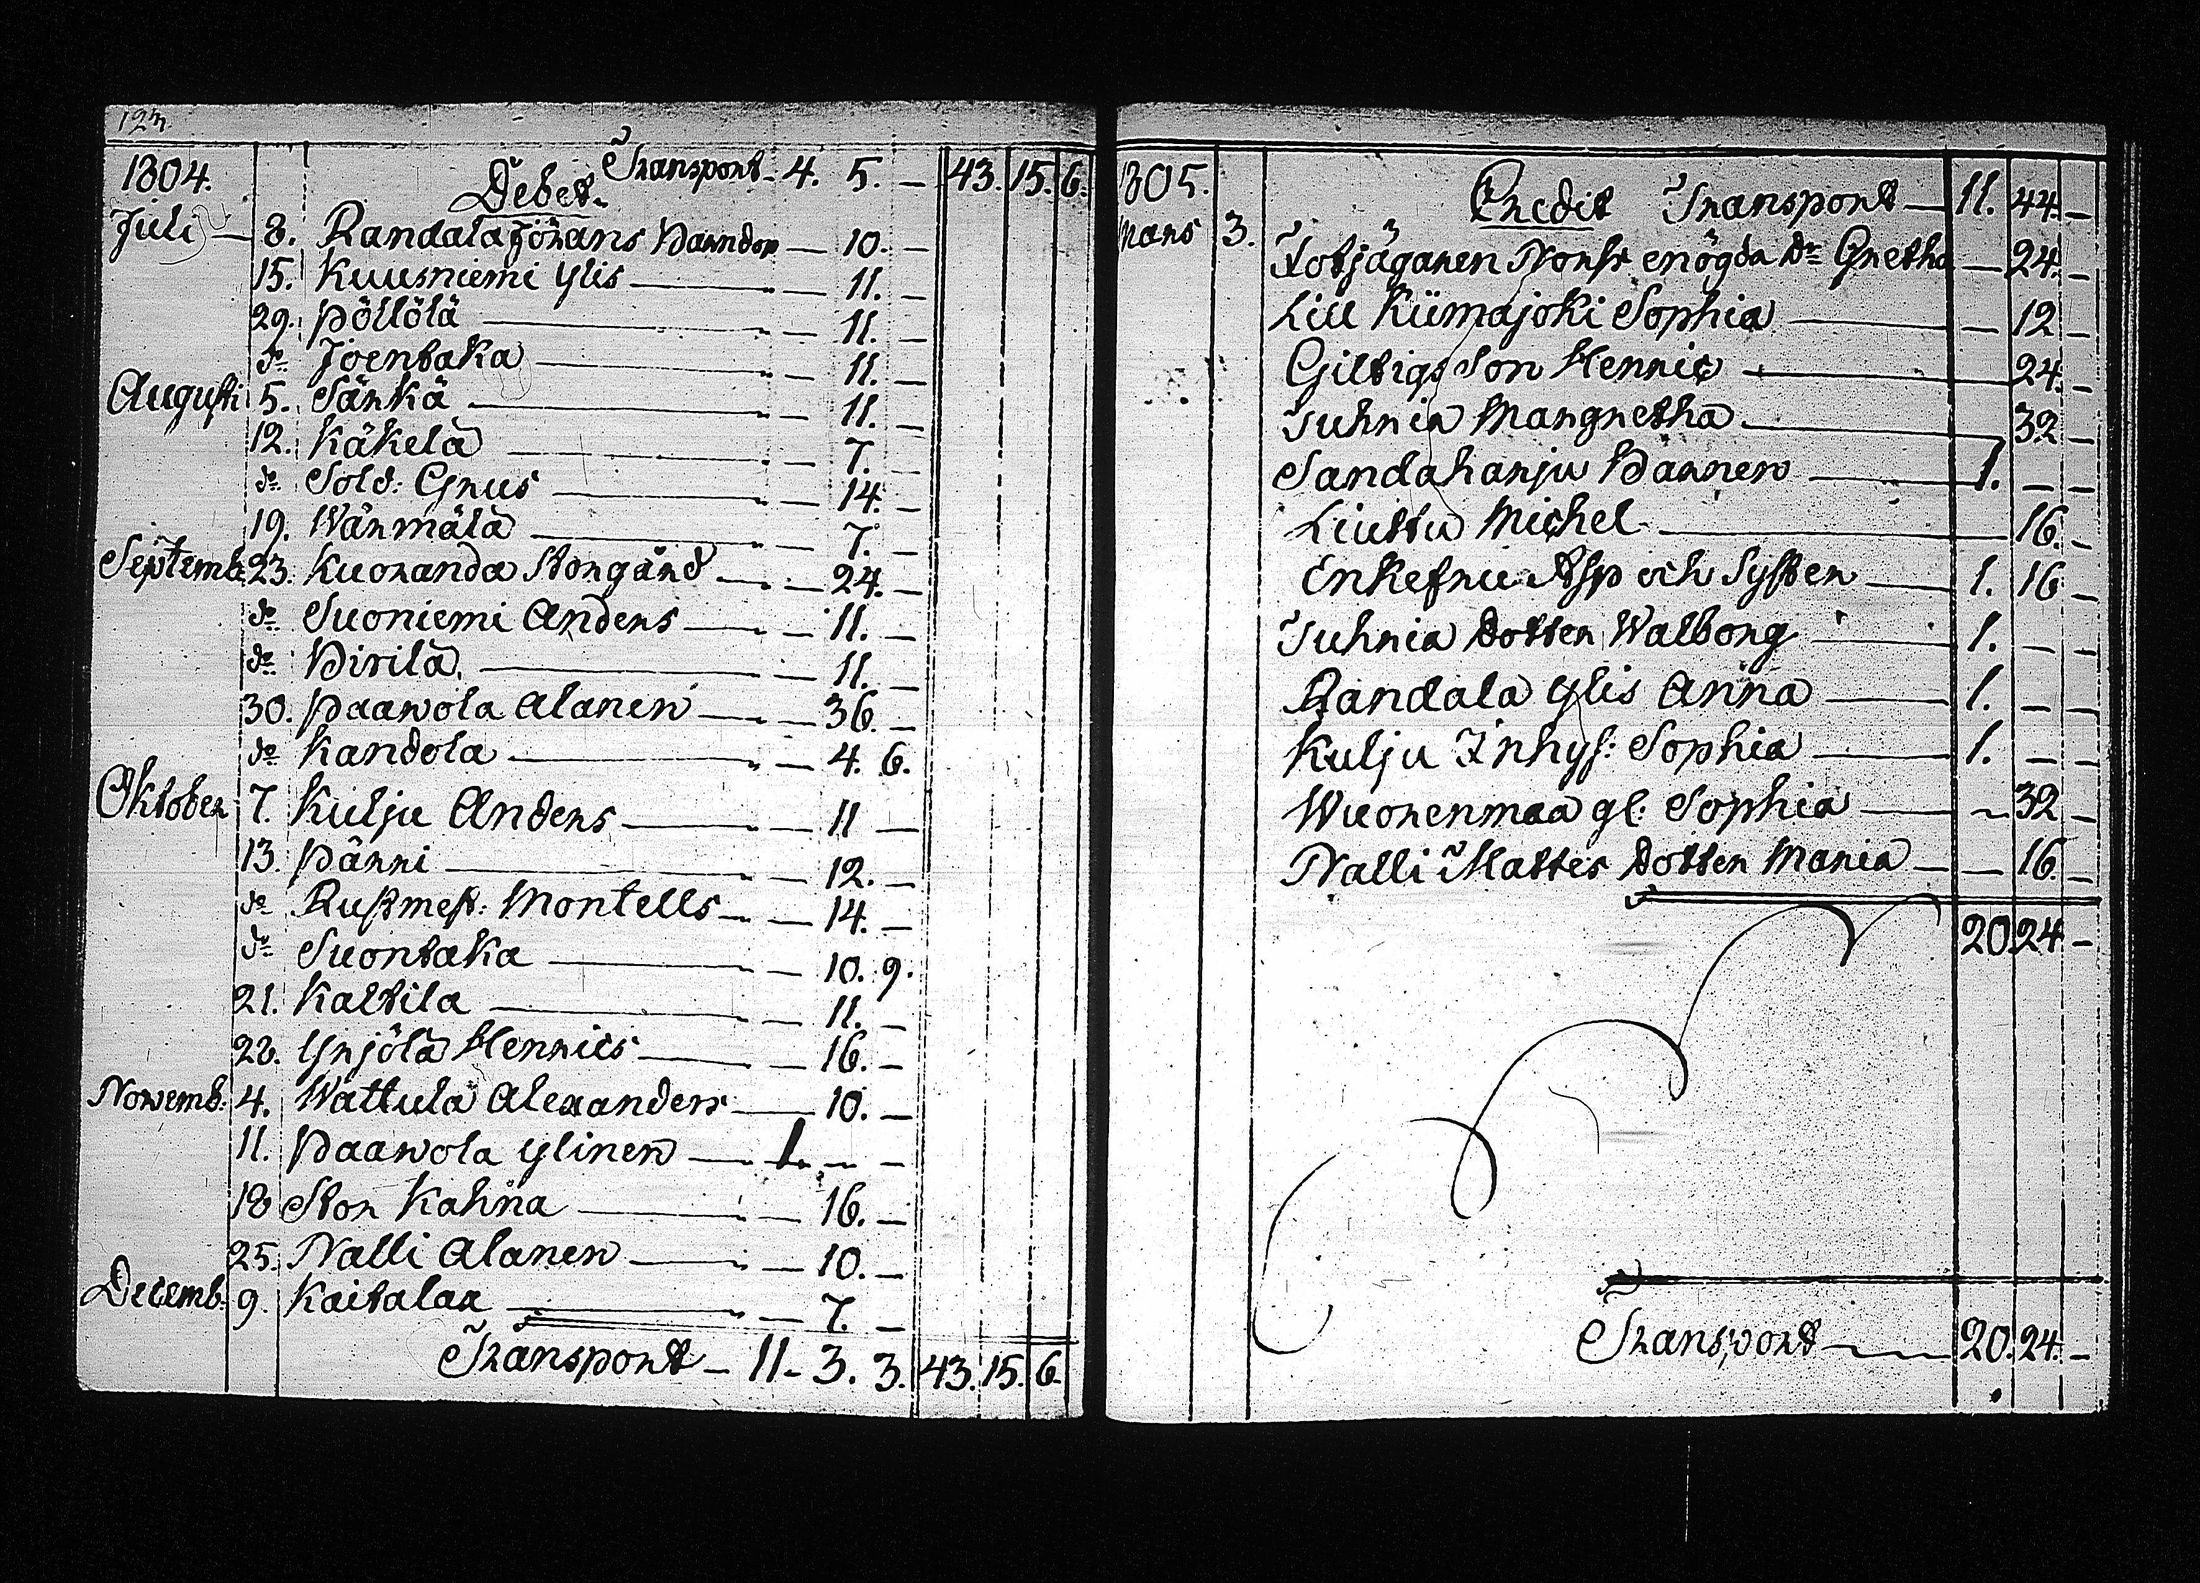 1804. Debet. Transport 4. 5. — 43. 15. 6.
Juli — 8. Randala Johans Barndop — 10. —
15. Kuusniemi Ylis — 11. —
29. Pöllölä — 11. —
do Joentaka — 11. —
Augusti 5. Sänkä — 11. —
12. Käkelä — 7. —
do Sold: Grus — 14. —
19. Wänmälä — 7. —
Septemb. 23. Kuoranda Storgård — 24. —
do Suoniemi Anders — 11. —
do Pirilä. — 11. —
30. Paawola Alanen — 36. —
do Kandola — 4. 6.
Oktober 7. Kulju Anders — 11 —
13. Pärri — 12. —
do Rustmest: Montells — 14. —
do Suontaka — 10. 9.
21. Kaltila — 11. —
28. Yrjölä Henrics — 16. —
Novemb: 4. Wattula Alexanders — 10. —
11. Paawola Ylinen — 1. — —
18 Stor Kahra — 16. —
25. Nalli Alanen — 10. —
Decemb. 9. Kaitalax — 7. —
Transport — 11. 3. 3. 43. 15. 6.
1805. Credit Transport — 11. 44. —
Mars 3. Fotjägaren enögda Dr Gretha — 24. —
Liu Kiimajoki Sophia — 12 —
Giltigs Son Henric — 24. —
Juhria Margretha — 32 —
Sandaharju Barnen — 1. — —
Liuttu Michel — 16. —
Enkefru Asp och Syster — 1. 16 —
Juhria Dotter Walborg — 1. — —
Randala Ylis Anna — 1. — —
Kulju Inhys: Sophia — 1. — —
Wuorenmaa gl: Sophia — 32 —
Nalli Mattes Dotter Maria — 16. —
20. 24 —
Transport — 20. 24. —